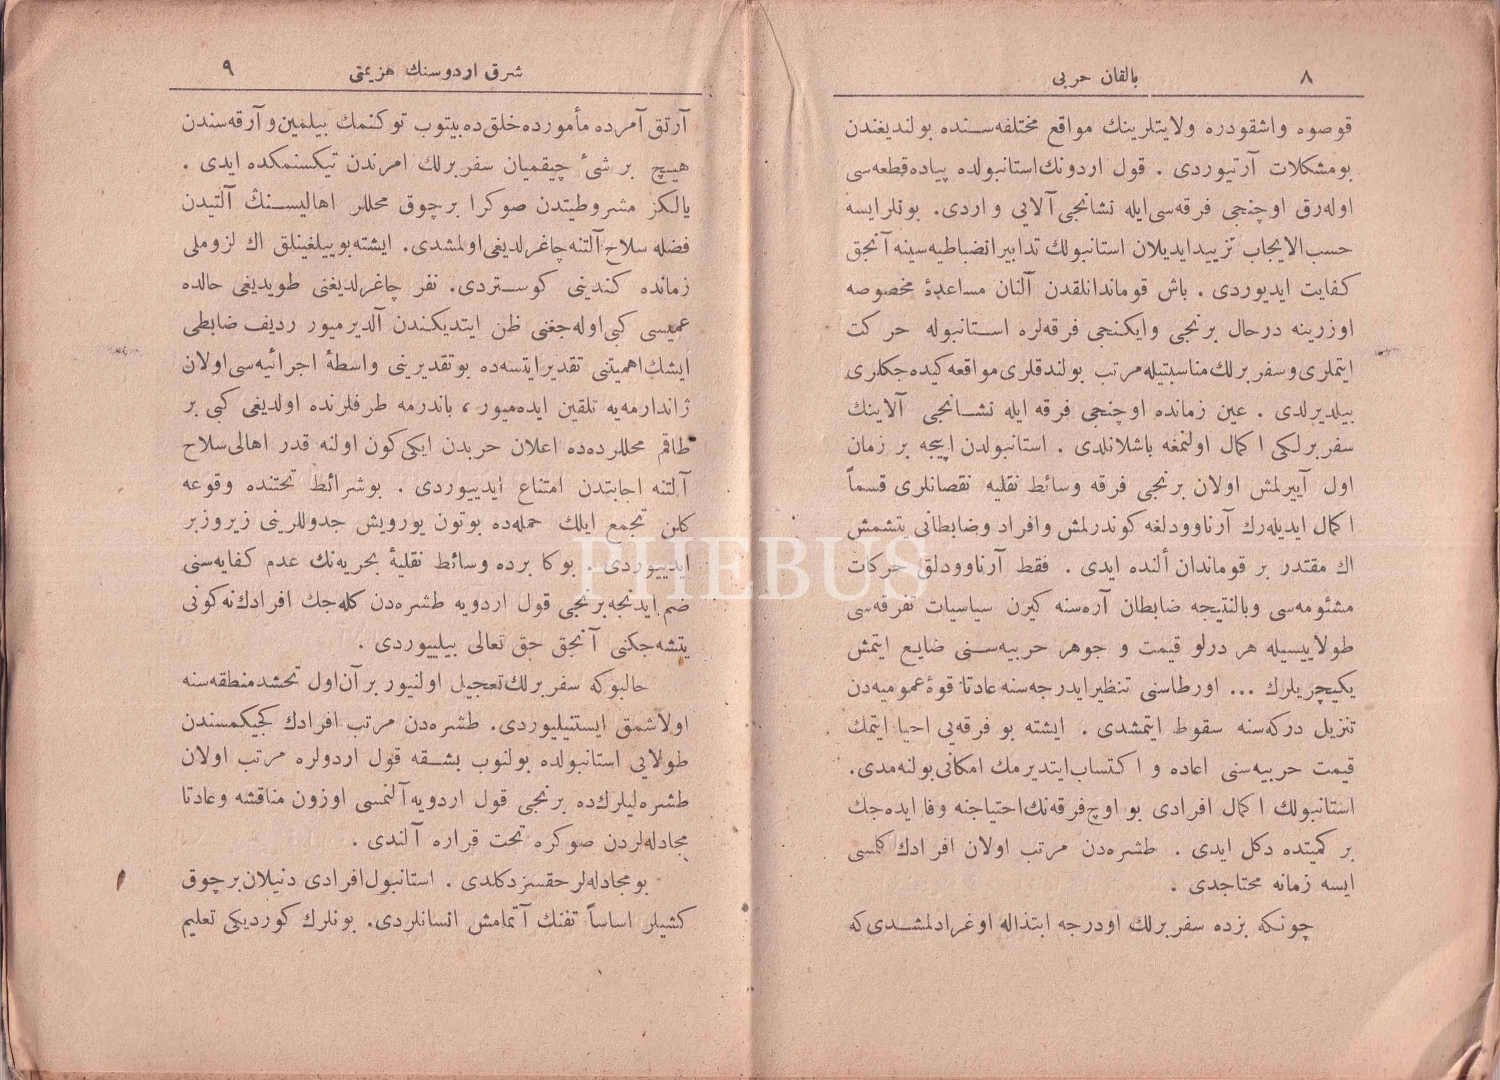 ٨
بالقان حربى
قوصوه واشقودره ولايتلرينك مواقع مختلفه‌سنده بولنديغندن
بومشكلات آرتيوردى . قول اردونك استانبولده پياده قطعه‌سى
اوله‌رق اوچنجى فرقه‌سى ايله نشانجى آلايى واردى. بونلرايسه
حسب الايجاب تزييد ايديلان استانبولك تدابير انضباطيه‌سينه آنجق
كفايت ايديوردى . باش قوماندانلقدن آلنان مساعدۀ مخصوصه
اوزرينه درحال برنجى وايكنجى فرقه‌لره استانبوله حركت
ايتملرى و سفربرلك مناسبتيله مرتب بولندقلرى مواقعه كيده‌جكلرى
بيلديرلدى . عين زمانده اوچنجى فرقه ايله نشانجى آلاينك
سفربرلكى اكمال اولنمغه باشلانلدى . استانبولدن اپيجه بر زمان
اول آييرلمش اولان برنجى فرقه وسائط نقليه نقصانلرى قسماً
اكمال ايديله‌رك آرناوودلغه كوندرلمش وافراد وضابطانى يتشمش
اك مقتدر بر قوماندان ألنده ايدى . فقط آرناوودلق حركات
مشئومه‌سى وبالنتيجه ضابطان آره‌سنه كيرن سياسيات تفرقه‌سى
طولاييسيله هر درلو قيمت و جوهر حربيه‌سنى ضايع ايتمش
يكيچريلرك ... اورطاسنى تنظير ايدرجه‌سنه عادتا قوۀ عموميه‌دن
تنزيل دركه‌سنه سقوط ايتمشدى . ايشته بو فرقه‌يى احيا ايتمك
قيمت حربيه‌سنى اعاده و اكتساب ايتديرمك امكانى بولنه‌مدى.
استانبولك اكمال افرادى بو اوچ فرقه‌نك احتياجنه وفا ايده‌جك
بر كميتده دكل ايدى . طشره‌دن مرتب اولان افرادك كلمسى
ايسه زمانه محتاجدى .
چونكه بزده سفربرلك اودرجه ابتذاله اوغرادلمشدى كه
شرق اردوسنك هزيمتى
٩
آرتق آمرده مأمورده خلق ده بيتوب توكنمك بيلمين و آرقه‌سندن
هيچ بر شئ چيقميان سفربرلك امرندن تيكسنمكده ايدى .
يالكز مشروطيتدن صوكرا برچوق محللر اهاليسنك آلتيدن
فضله سلاح آلتنه چاغرلديغى اولمشدى. ايشته بوبيلغينلق اك لزوملى
زمانده كندينى كوستردى. نفر چاغرلديغنى طويديغى حالده
عميسى كبى اوله‌جغنى ظن ايتديكندن آلديرميور رديف ضابطى
ايشك اهميتنى تقدير ايتسه‌ده بوتقديرينى واسطۀ اجرائيه‌سى اولان
ژاندارمه‌يه تلقين ايده‌ميور ، باندرمه طرفلرنده اولديغى كبى بر
طاقم محللرده‌ده اعلان حربدن ايكى كون اولنه قدر اهالى سلاح
آلتنه اجابتدن امتناع ايدييوردى . بوشرائط تحتنده وقوعه
كلن تجمع ايلك حمله‌ده بوتون يورويش جدوللرينى زيروزبر
ايدييوردى . بوكا برده وسائط نقليۀ بحريه‌نك عدم كفايه‌سنى
ضم ايدنجه برنجى قول اردويه طشره‌دن كله‌جك افرادك نه كونى
يتشه‌جكنى آنجق حق تعالى بيلييوردى .
حالبوكه سفربرلك تعجيل اولنيور بر آن اول تحشد منطقه‌سنه
اولاشمق ايستنيلييوردى. طشره‌دن مرتب افرادك كجيكمسندن
طولايى استانبولده بولنوب بشقه قول اردولره مرتب اولان
طشره‌ليلرك‌ده برنجى قول اردويه آلنمسى اوزون مناقشه وعادتا
مجادله‌لردن صوكره تحت قراره آلندى .
بو مجادله‌لر حقسز دكلدى . استانبول افرادى دنيلان برچوق
كشيلر اساساً تفنك آتمامش انسانلردى. بونلرك كورديكى تعليم
PHEBUS